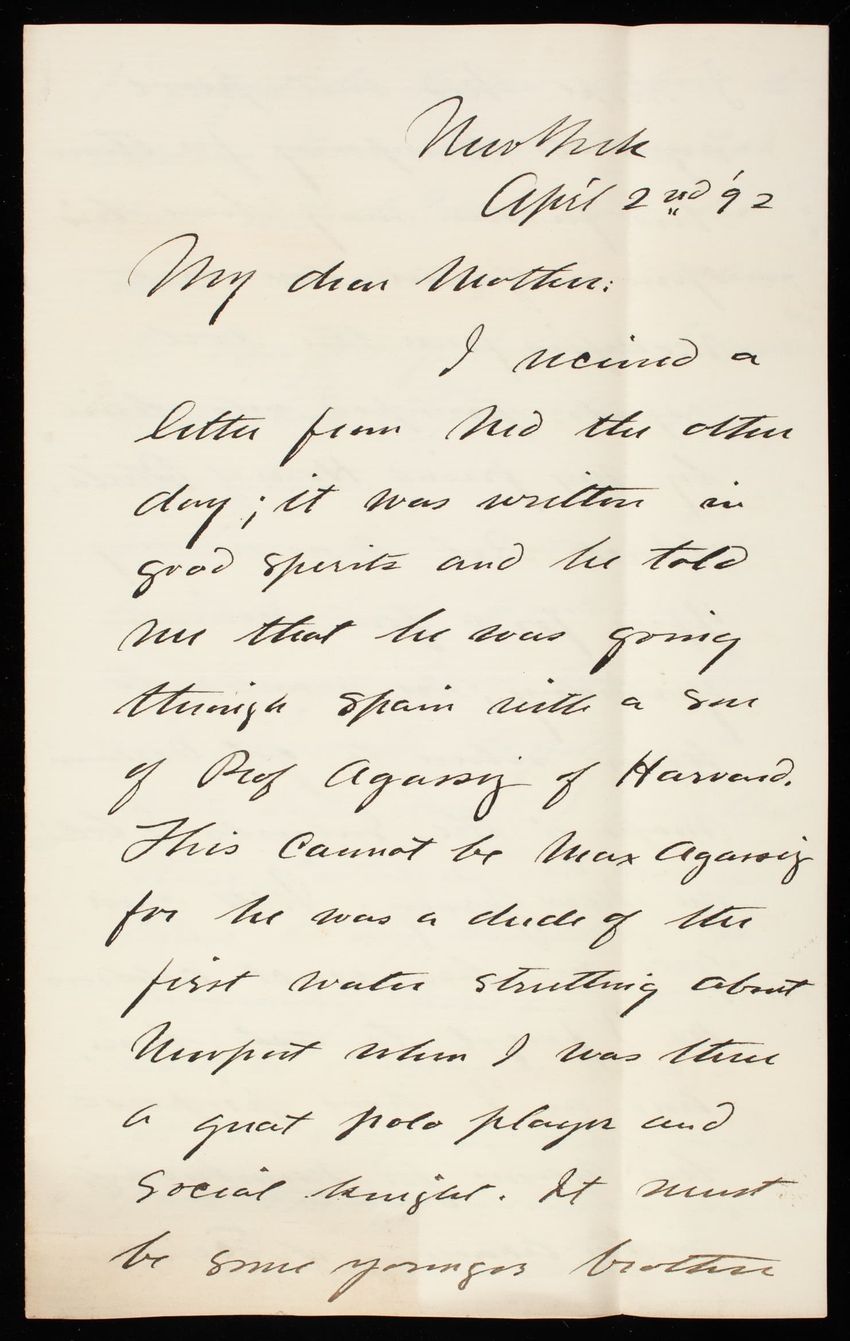 New York
April 2nd '92
My dear Mother:
I recieved a
letter from Ned the other
day; it was written in
good spirits and he told
me that he was going
through Spain with a son
of Prof Agassiz of Harvard.
This cannot be Max Agassiz
for he was a dude of the
first water strutting about
Newport when I was there
a great polo player and
social knight. It must
be some younger brother